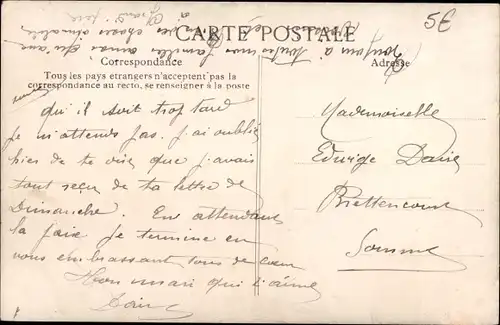 5€
CARTE POSTALE
Correspondance
Adresse
Tous les pays étrangers n'acceptent pas la
correspondance au recto, se renseigner à la poste
qu'il soit trop tard
je m'attends pas. J'ai oublié
hier de te dire que j'avais
tout reçu de ta lettre de
Dimanche. En attendant
la paix je termine en
vous embrassant tous de coeur
Ton mari qui t'aime
Mademoiselle
Edwige
Somme
Bonjour à toutes nos familles ainsi qu'aux